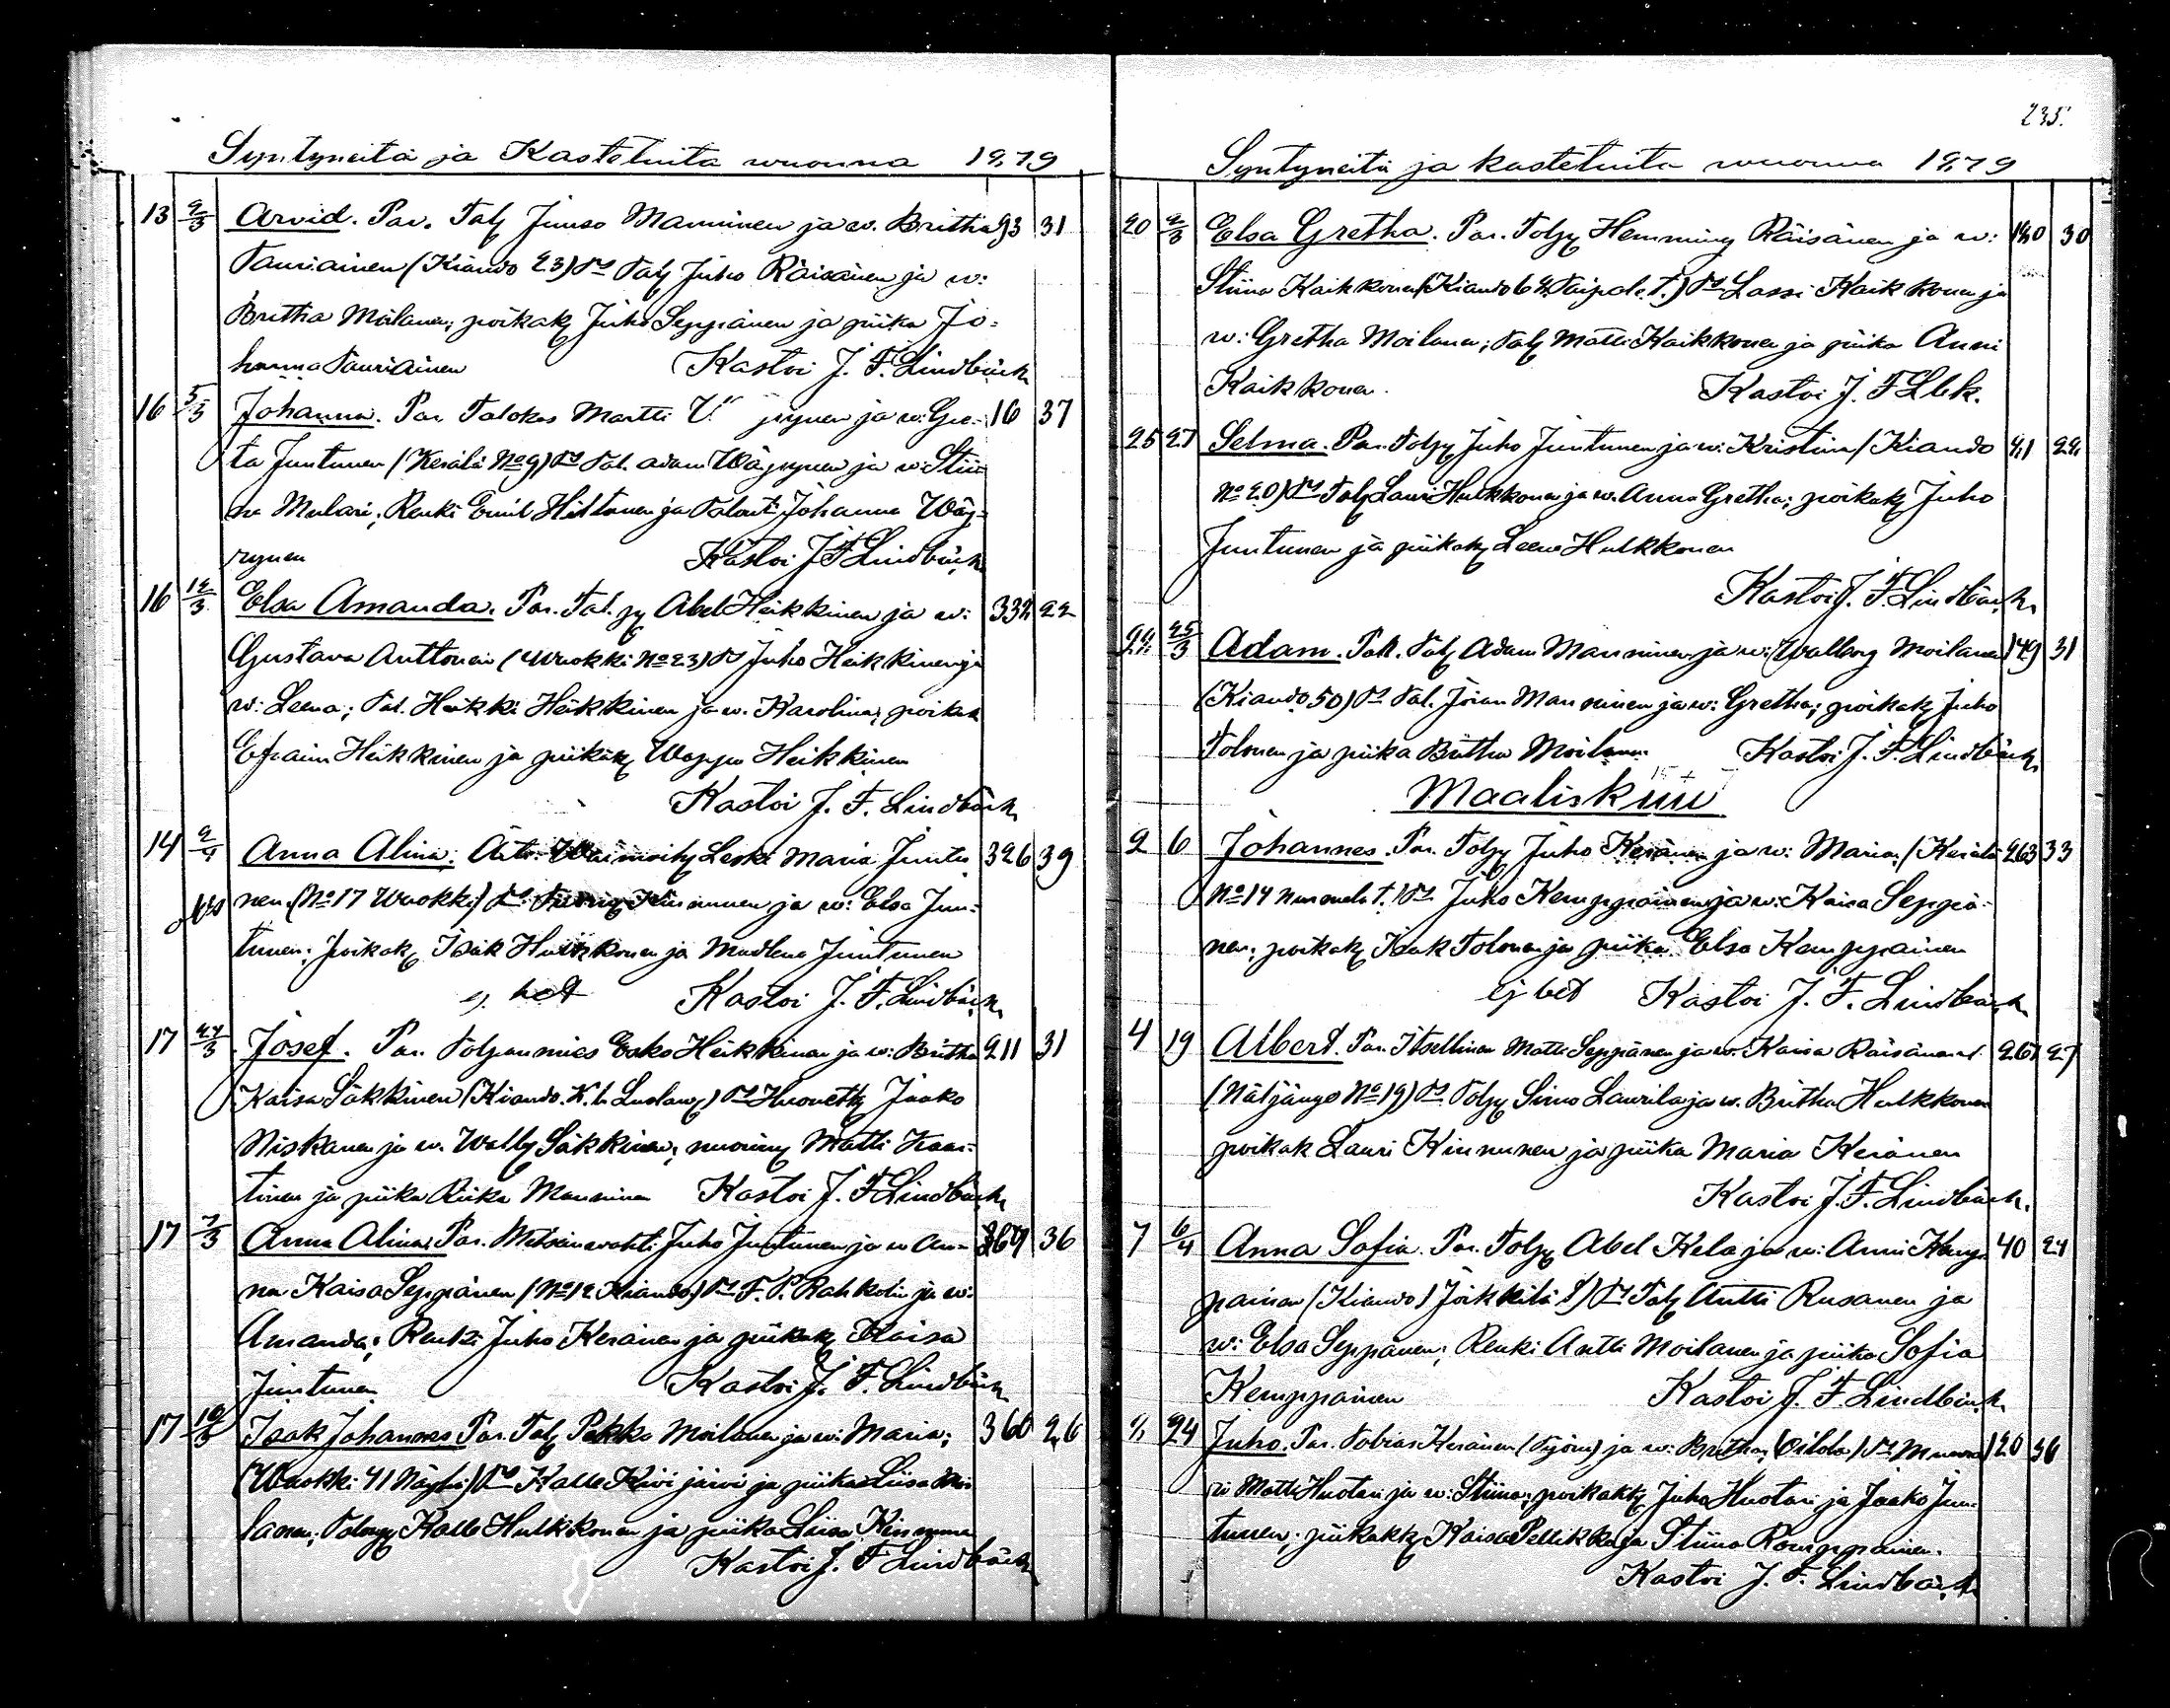 Syntyneitä ja Kastetuita wuonna 1879
13 2/3 Arvid. Par. Talj Juuso Manninen ja w. Britha 93 31
Tauriainen (Kiando 23) Ts Talj Juho Räisänen ja w:
Britha Moilanen; poikak Juho Seppänen ja piika Jo=
hanna Tauriainen Kastoi J. F. Lindbäck
16 5/3 Johanna. Par. Talokas Martti ja w: Gre- 16 37
ta Juntunen (Kerälä No 9) Ts Tal. Adam Wäyrynen ja w: Stii
na Mulari; Renki Emil Hiltunen ja Johanna Wäy=
rynen Kastoi J. F. Lindbäck
16 12/3 Elsa Amanda. Par. Tal. Abel Heikkinen ja w: 332 22
Gustava Anttonen (Wuokki No 23) Ts Juho Heikkinen ja
w: Leena; Tal. Heikki Heikkinen ja w. Karolina; poikak
Efraim Heikkinen ja piikak Wappu Heikkinen
Kastoi J. F. Lindbäck
14 2/4 Anna Alina. Leski Maria Juntu 326 39
nen. (No 17 Wuokki) Ts Kinnunen ja w: Elsa Jun=
tunen; poikak Isak Hulkkonen ja Madlena Juntunen
ej bet Kastoi J. F. Lindbäck
17 24/3 Josef. Par. Torpanmies Esko Heikkinen ja w: Britha 211 31
Kaisa Säkkinen (Kiando. K. l. ) Ts Jaako
Niskanen ja w. Walb Säkkinen; nuorimj Matti Kaar=
tinen ja piika Riika Manninen Kastoi J. F. Lindbäck
17 7/3 Anna Alina. Par. Metsänwahti Juho Juntunen ja w An= 369 36
na Kaisa Seppänen (No 12 Kiando) Ts F. P. Rahkolin ja w:
Amanda; Renki Juho Keränen ja piikak Kaisa
Juntunen Kastoi J. F. Lindbäck
17 10/3 Isak Johannes Par. Talj Pekka Moilanen ja w: Maria; 360 26
(Wuokki 41 ) Ts Kalle Kiwijärwi ja piika Liisa Moi
lanen; Kalle Hulkkonen ja piika Liisa Kinnunen
Kastoi J. F. Lindbäck
235.
Syntyneitä ja kastetuita wuonna 1879
20 2/3 Elsa Gretha. Par. Torpj Hemming Räisänen ja w: 180 30
Stiina Kaikkonen (Kiando 64 Taipale t.) Ts Lassi Kaikkonen ja
w: Gretha Moilanen; Talj Matti Kaikkonen ja piika Anni
Kaikkonen. Kastoi J. F. Lbk.
25 27 Selma. Par. Torpj Juho Juntunen ja w: Kristina (Kiando 41 22
No 20) Ts Talj Lauri Hulkkonen ja w. Anna Gretha; poikak Juho
Juntunen ja piikak Leena Hulkkonen
Kastoi J. F. Lindbäck
24 25/3 Adam. Par. Talj Adam Manninen ja w: Walborg Moilanen 149 31
(Kiando 50) Ts Tal. Jöran Manninen ja w: Gretha; poikak Juho
Tolonen ja piika Britha Moilanen Kastoi J. F. Lindbäck
Maaliskuu
2 6 Johannes. Par. Torpj Juho Keränen ja w: Maria; (Kerälä 263 33
No 14 Nurmela t.) Ts Juho Kemppainen ja w: Kaisa Seppä-
nen; poikak Isak Tolonen ja piika Elsa Kemppainen
ej bet Kastoi J. F. Lindbäck
4 19 Albert. Par. Itsellinen Matti Seppänen ja w. Kaisa Räisänen 267 27
(Näljänge No 19) Ts Torpj Simo Laurila ja w. Britha Hulkkonen
poikak Lauri Kinnunen ja piika Maria Keränen
Kastoi J. F. Lindbäck.
7 6/4 Anna Sofia. Par. Torpj Abel Kela ja w: Anni Kemp 40 24
painen (Kiando) Ts Talj Antti Rusanen ja
w: Elsa Seppänen; Renki Antti Moilanen ja piika Sofia
Kemppainen Kastoi J. F. Lindbäck
24 Juho. Par. Tobias Keränen ja w: Britha; Ts 120 36
ri Matti Huotari ja w: Stiina; poikakk Juho Huotari ja Jaako Jun=
tunen; piikakk Kaisa Pellikka ja Stiina Romppainen.
Kastoi J. F. Lindbäck